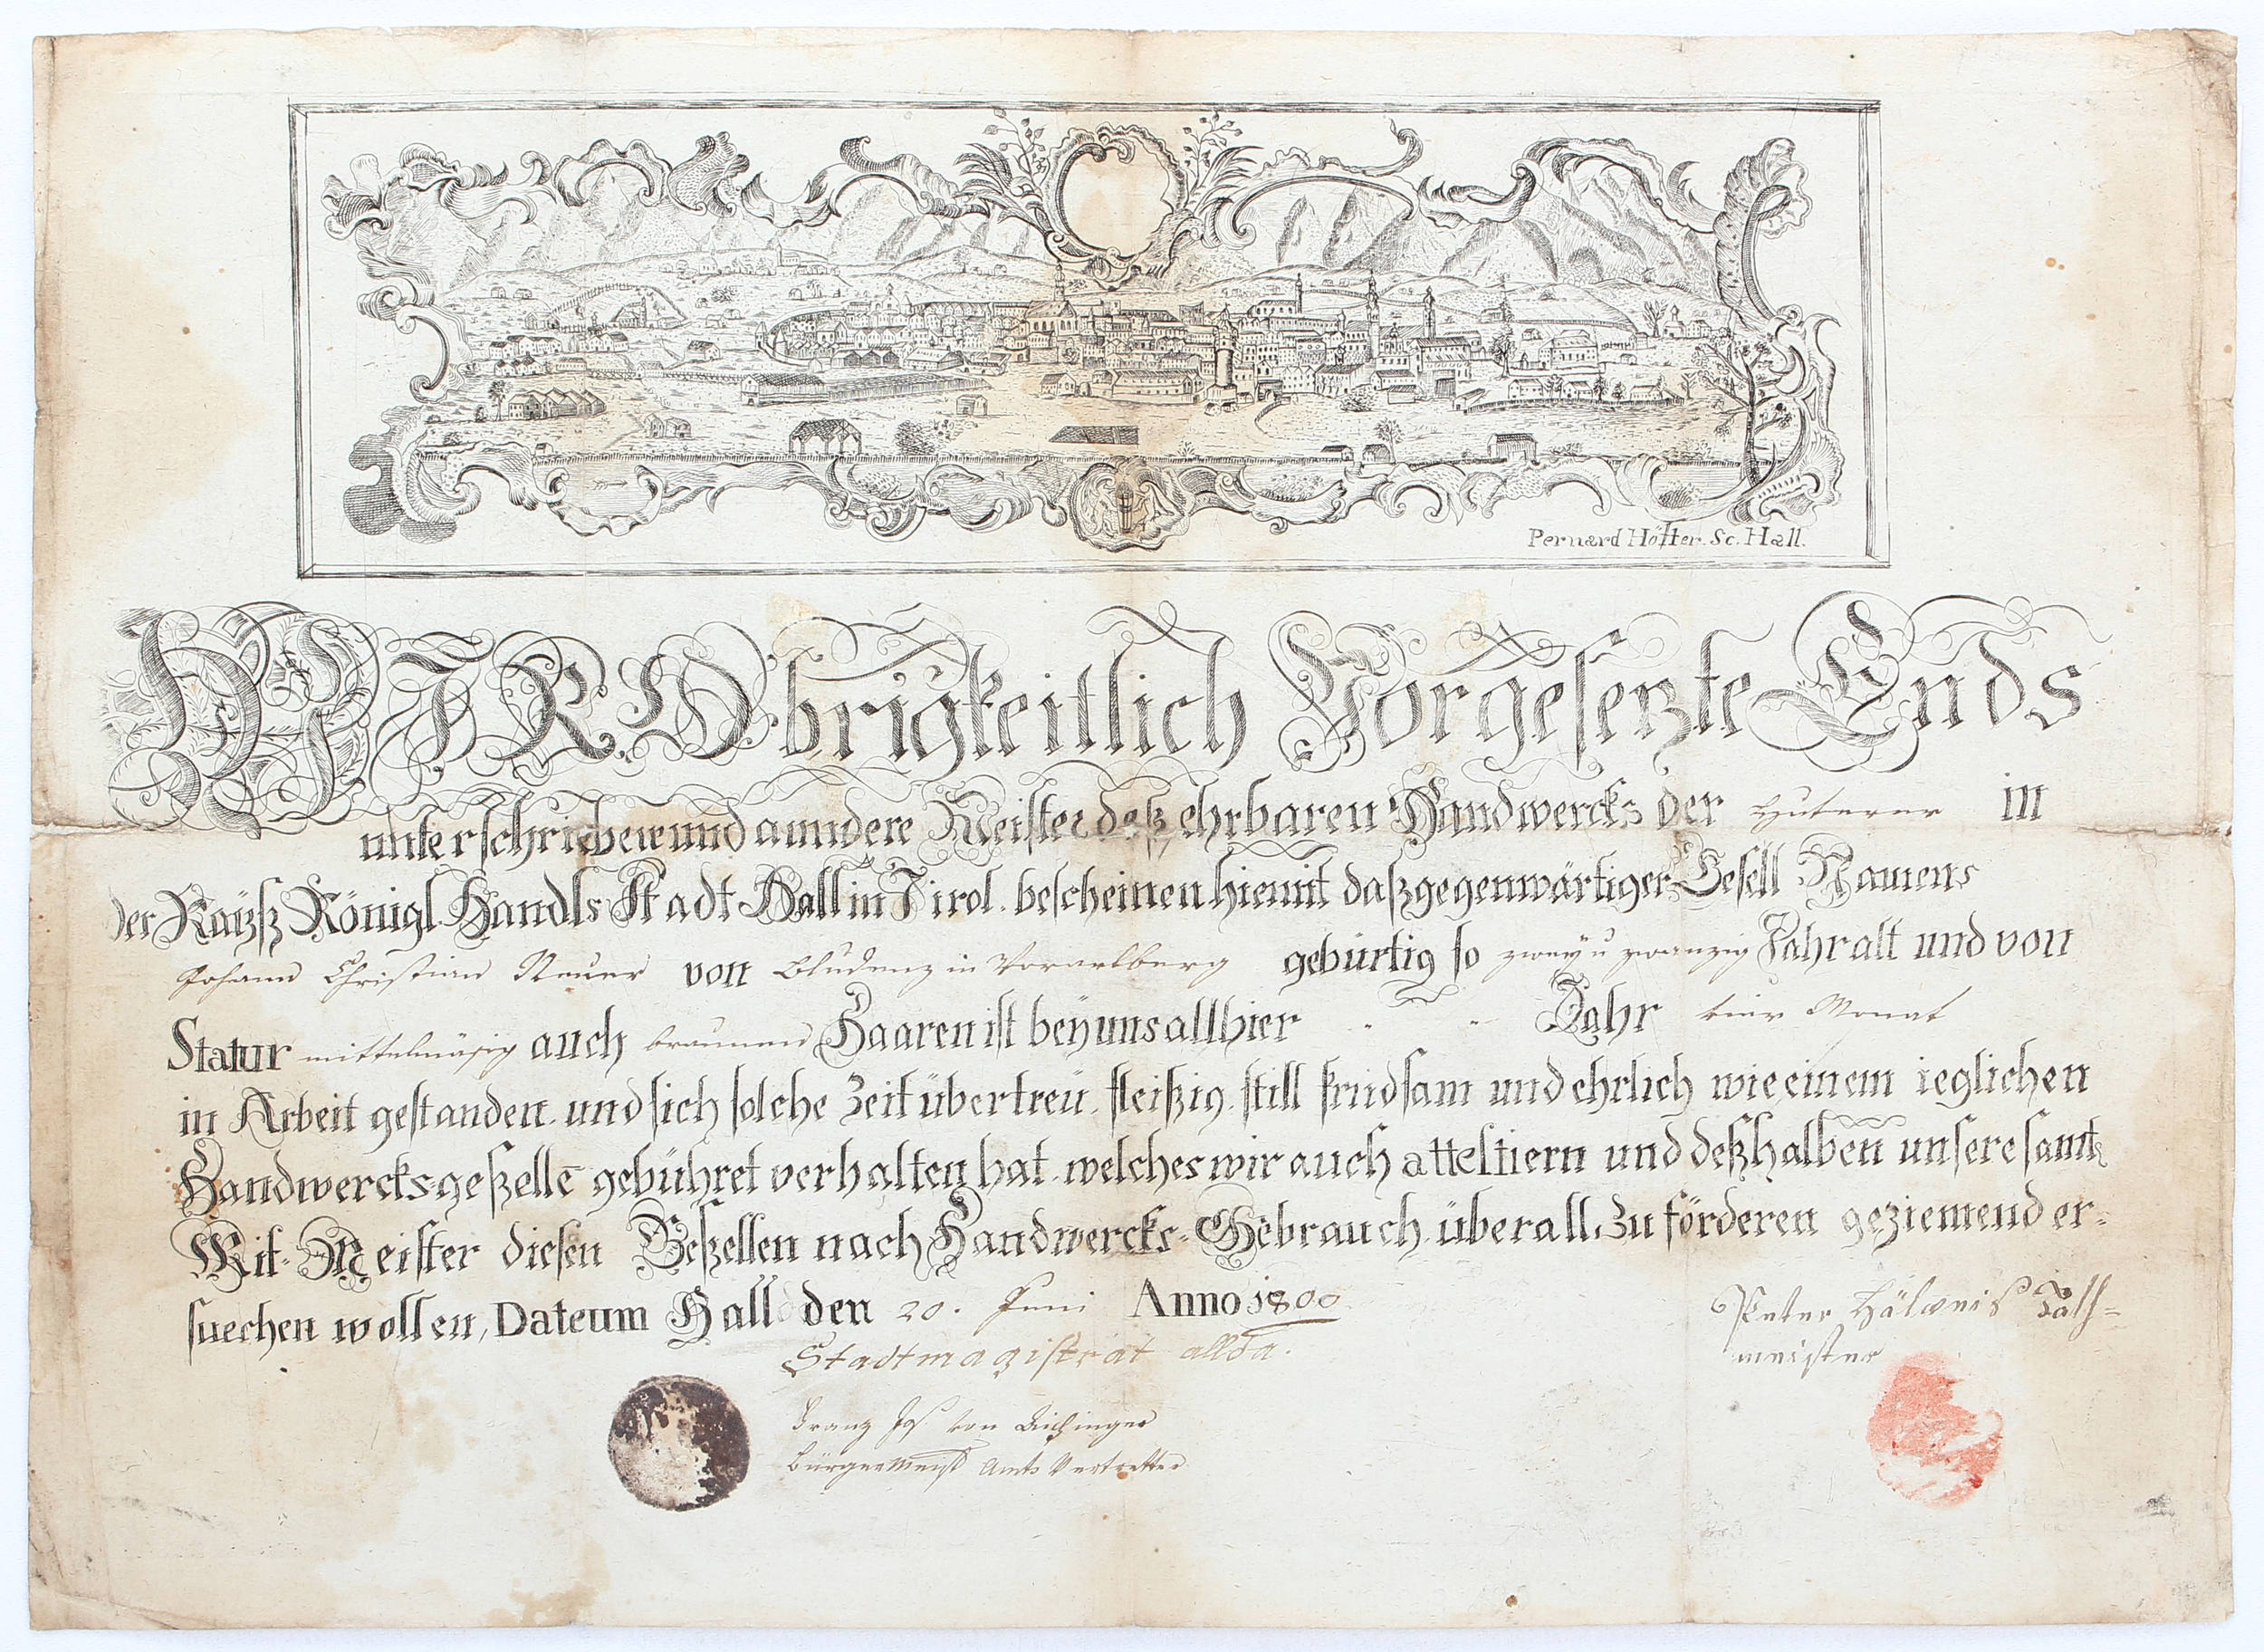 Pernard Hötter. Sc. Hall.
WIR Obrigkeitlich Vorgesetzte Ends
unterschriebene und anndere Meister deß ehrbaren Handwercks der Huterer in
der Kaÿß Königl. Handls Stadt Hall in Tirol. bescheinen hiemit daß gegenwärtiger Gesell Namens
Johann Christian Neuer von Bludenz in Vorarlberg gebürtig so zweÿ u zwanzig Jahr alt und von
Statur mittelmäsig auch braunen Haaren ist beÿ uns allhier Jahr Monat
in Arbeit gestanden. und sich solche Zeit über treü, fleißig, still fridsam und ehrlich wie einem ieglichen
Handwercksgeßellē gebühret verhalten hat. welches wir auch attestiern und deßhalben unsere samt
Mit-Meister diesen Geßellen nach Handwercks-Gebrauch. überall zu förderen geziemend er-
suechen wollen, Dateum Hall den 20. Juni Anno 1800
Stadtmagistrat allda.
Peter
meister
Franz Jos. von Aichinger
Bürgermeist Amts Vertretter